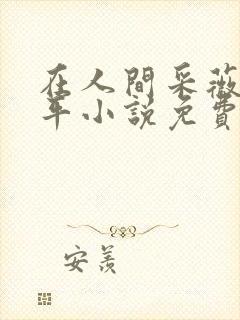 在人間采薇
年小說免費
安羨